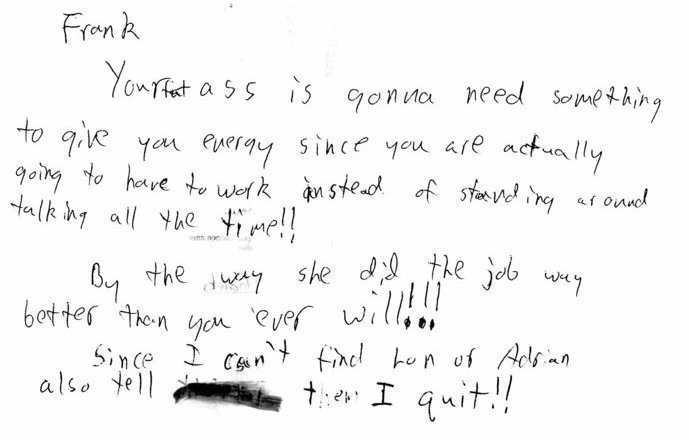 Frank
Your fat ass is gonna need something
to give you energy since you are actually
going to have to work instead of standing around
talking all the time!!
By the way she did the job way
better than you ever will!!!!
Since I can't find Lon or Adrian
also tell them I quit!!